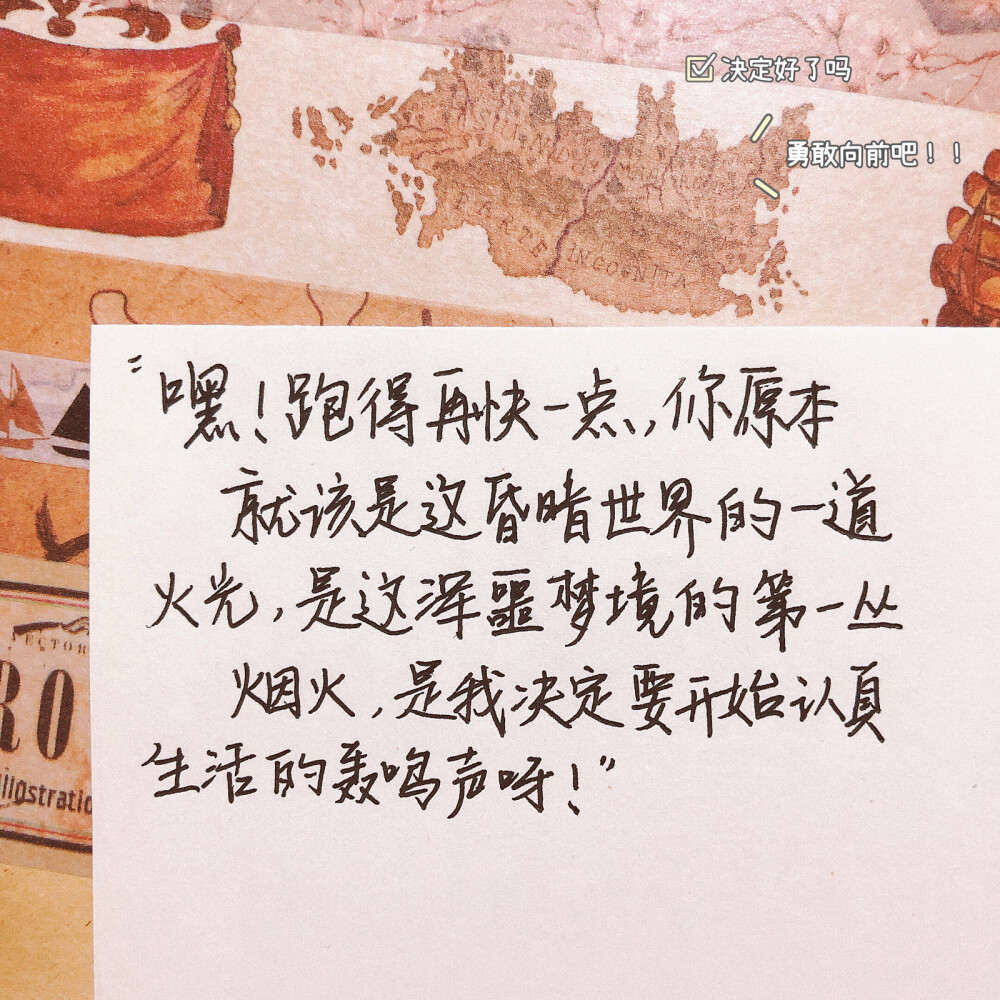 决定好了吗
勇敢向前吧！！
TERRE INCOGNITA
"嘿！跑得再快一点，你原本
就该是这昏暗世界的一道
火光，是这浑噩梦境的第一丛
烟火，是我决定要开始认真
生活的轰鸣声呀！"
ECTOR
RO
illostratio